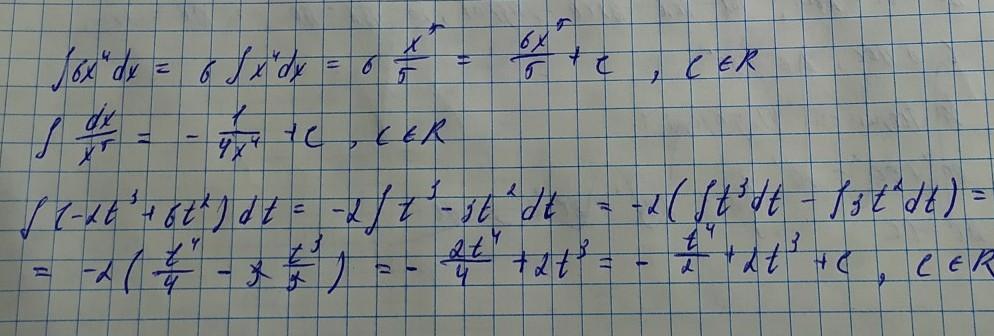 ∫6x⁴dx = 6 ∫x⁴dx = 6 x⁵/5 = 6x⁵/5 + C , C ∈ R
∫ dx/x⁵ = - 1/4x⁴ + C , C ∈ R
∫(-2t³ + 6t²) dt = -2∫t³ - 3t² dt = -2(∫t³dt - ∫3t²dt) =
= -2( t⁴/4 - 3 t³/3 ) = - 2t⁴/4 + 2t³ = - t⁴/2 + 2t³ + C , C ∈ R